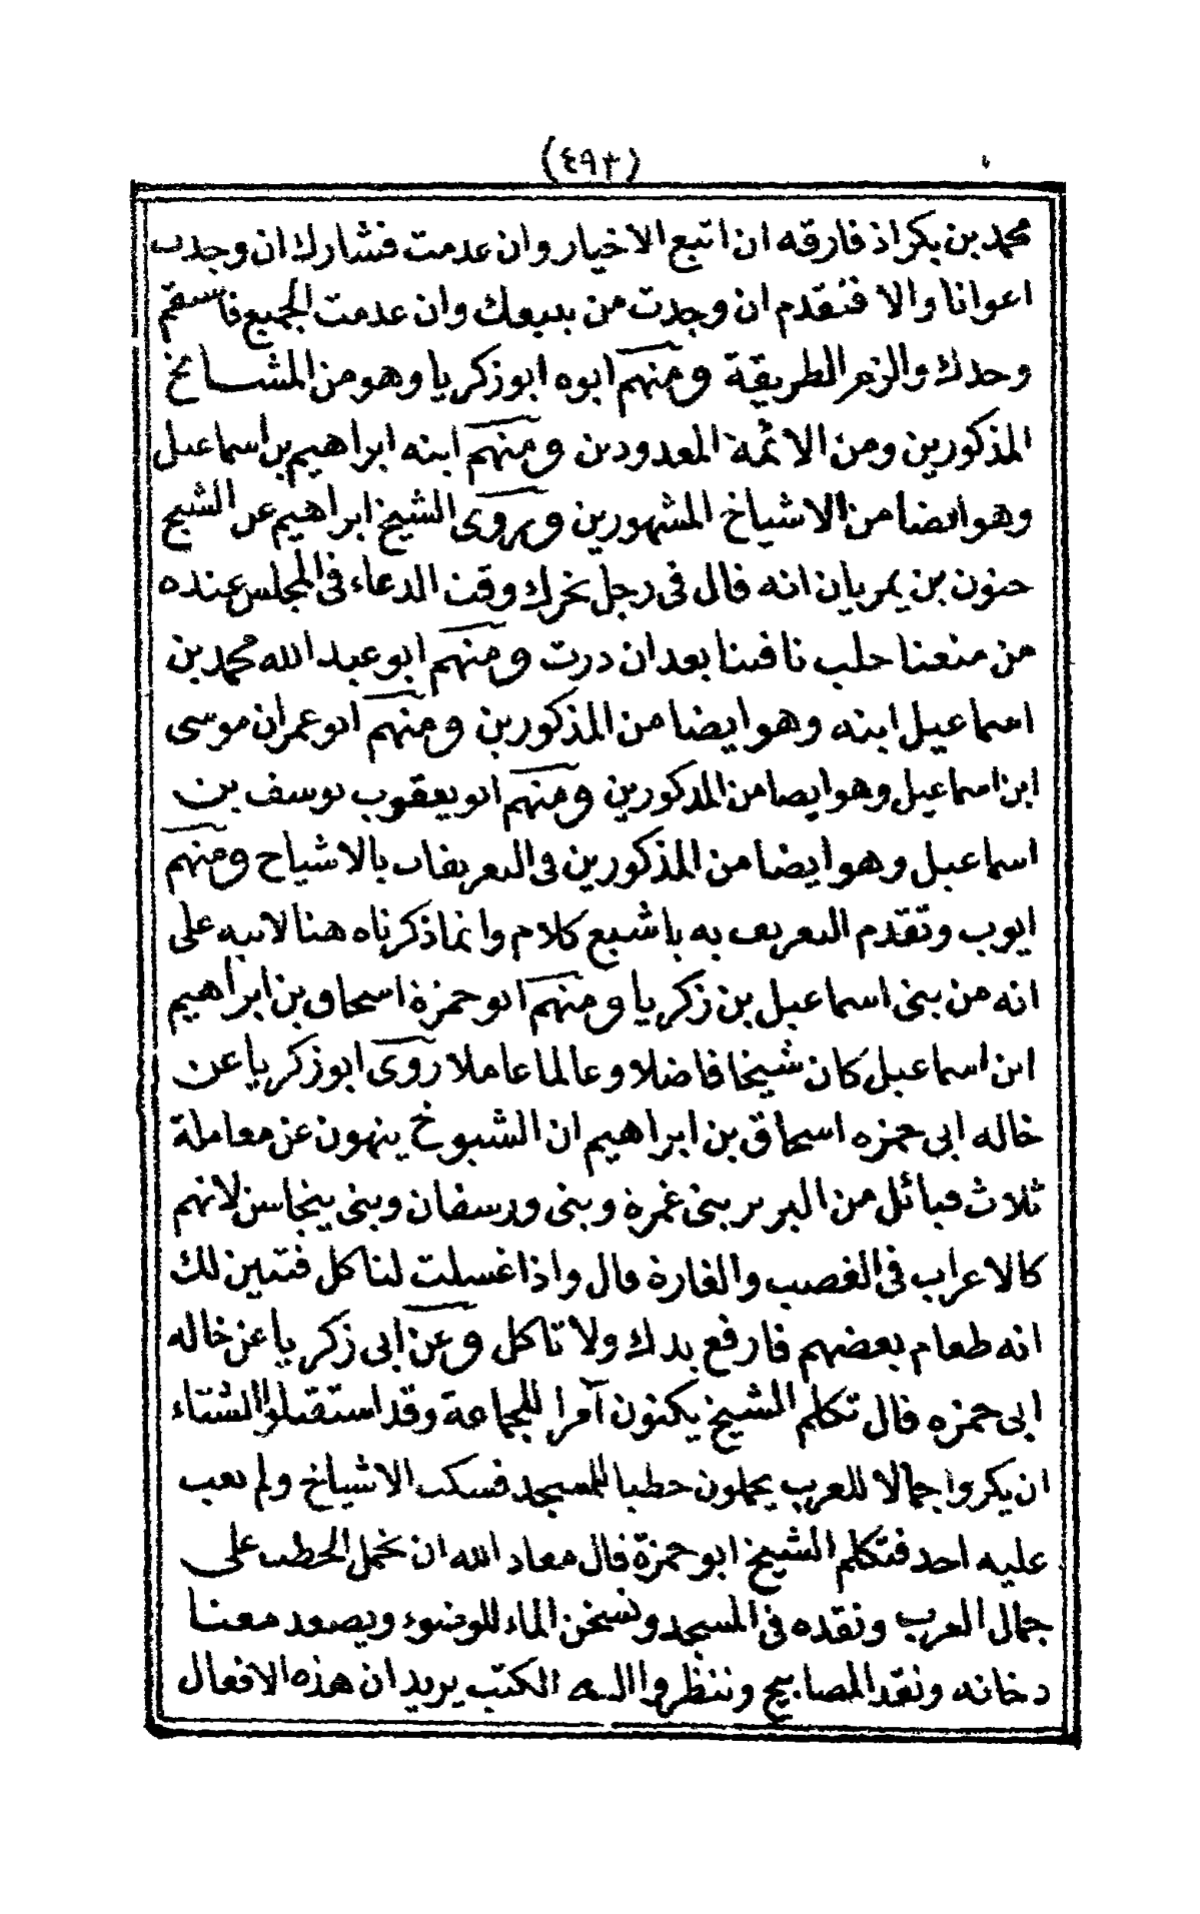 (٤٩٣)
محمد بن بكر اذ فارقه ان اتبع الاخيار وان عدمت فشارك ان وجدت
اعوانا والا فتقدم ان وجدت من يتبعك وان عدمت الجميع فاستقم
وحدك والزم الطريقة ومنهم ابوه ابو زكريا وهو من المشايخ
المذكورين ومن الائمة المعدودين ومنهم ابنه ابراهيم بن اسماعيل
وهو ايضا من الاشياخ المشهورين ويروى الشيخ ابراهيم عن الشيخ
حنون بن يمريان انه قال فى رجل تحرك وقت الدعاء فى المجلس عنده
من منعنا حلب نافتنا بعد ان درت ومنهم ابو عبد الله محمد بن
اسماعيل ابنه وهو ايضا من المذكورين ومنهم ابو عمران موسى
ابن اسماعيل وهو ايضا من المذكورين ومنهم ابو يعقوب يوسف بن
اسماعيل وهو ايضا من المذكورين فى التعريفات بالاشياخ ومنهم
ايوب وتقدم التعريف به باشبع كلام وانما ذكرناه هنا لانبه على
انه من بنى اسماعيل بن زكريا ومنهم ابو حمزة اسحاق بن ابراهيم
ابن اسماعيل كان شيخا فاضلا وعالما عاملا روى ابو زكريا عن
خاله ابى حمزه اسحاق بن ابراهيم ان الشيوخ ينهون عن معاملة
ثلاث قبائل من البربر بنى غمرة وبنى ورسفان وبنى ينجاسن لانهم
كالاعراب فى الغصب والغارة قال واذا غسلت لتاكل فتبين لك
انه طعام بعضهم فارفع يدك ولا تاكل وعن ابى زكريا عن خاله
ابى حمزه قال تكلم الشيخ يكنون آمرا للجماعة وقد استقبلوا الشتاء
ان يكروا جمالا للعرب يحملون حطبا للمسجد فسكت الاشياخ ولم يعب
عليه احد فتكلم الشيخ ابو حمزة قال معاذ الله ان نحمل الحطب على
جمال العرب ونقده فى المسجد ونسخن الماء للوضوء ويصعد معنا
دخانه ونقد المصابيح وننظر والـه الكتب يريد ان هذه الافعال